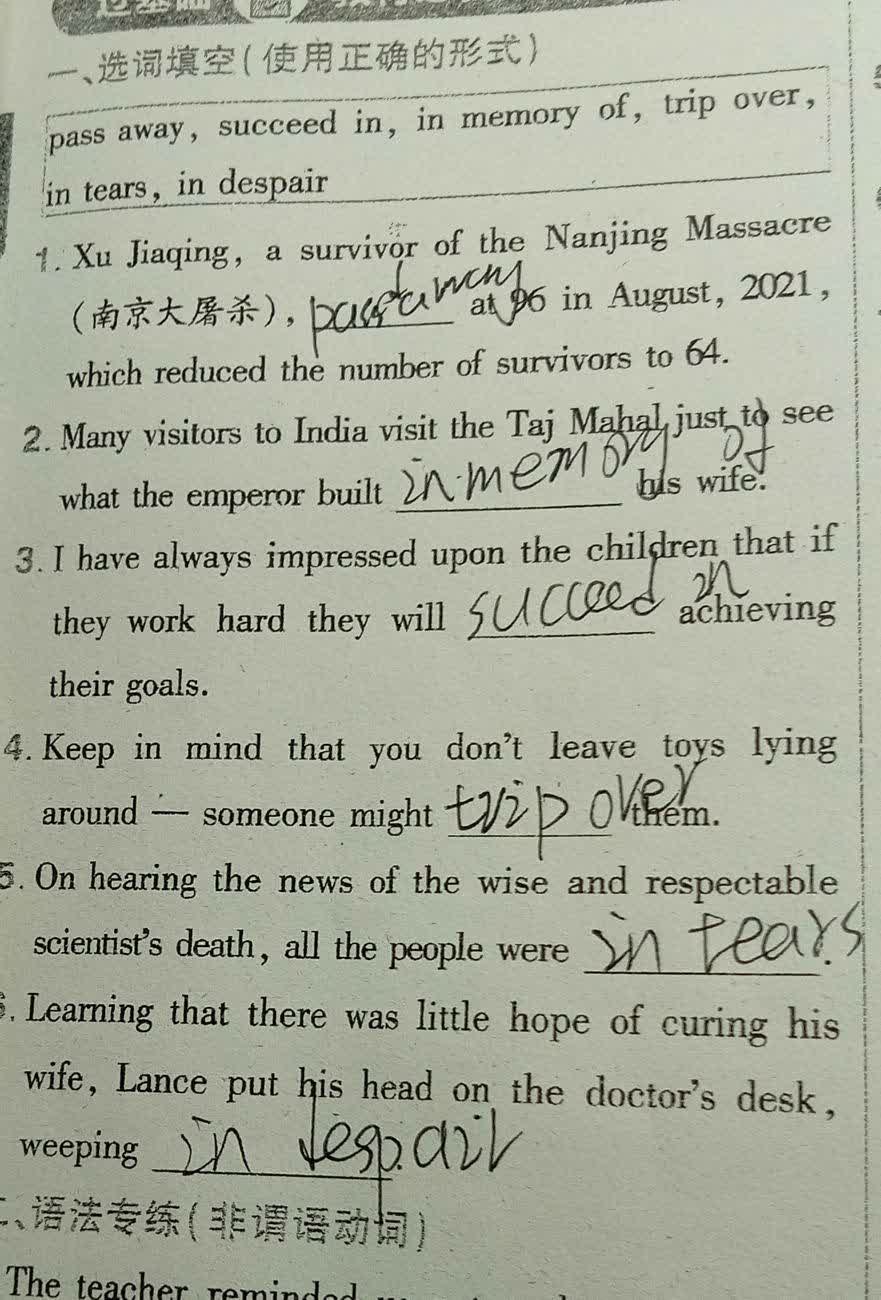 一、选词填空(使用正确的形式)
pass away, succeed in, in memory of, trip over,
in tears, in despair
1. Xu Jiaqing, a survivor of the Nanjing Massacre
(南京大屠杀), passed away at 96 in August, 2021,
which reduced the number of survivors to 64.
2. Many visitors to India visit the Taj Mahal just to see
what the emperor built in memory of his wife.
3. I have always impressed upon the children that if
they work hard they will succeed in achieving
their goals.
4. Keep in mind that you don't leave toys lying
around — someone might trip over them.
5. On hearing the news of the wise and respectable
scientist's death, all the people were in tears.
6. Learning that there was little hope of curing his
wife, Lance put his head on the doctor's desk,
weeping in despair.
二、语法专练(非谓语动词)
The teacher reminded